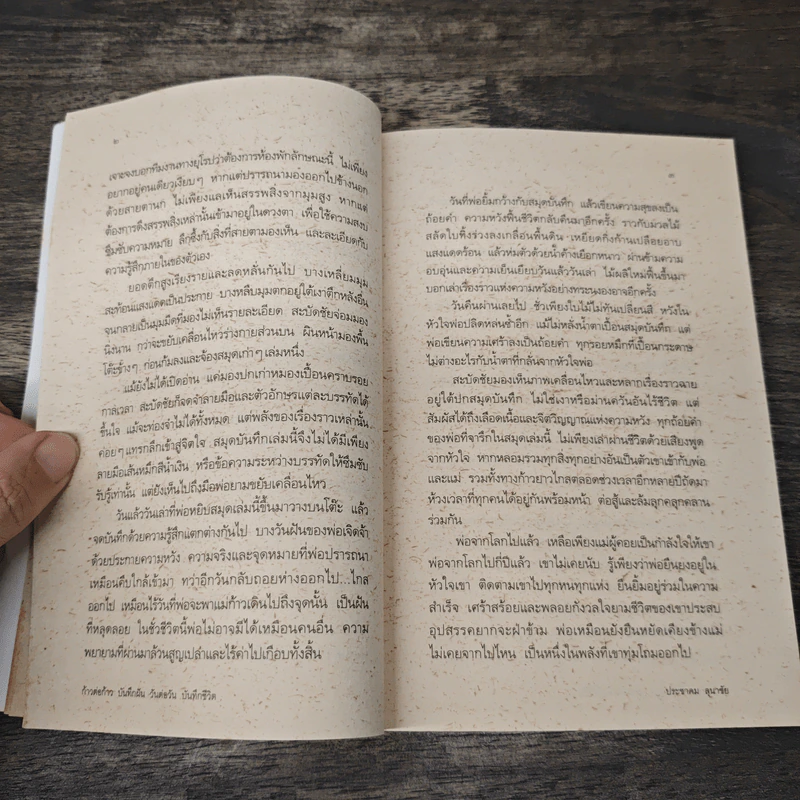 ๒
เจาะจงบอกทีมงานทางยุโรปว่าต้องการห้องพักลักษณะนี้ ไม่เพียง
อยากอยู่คนเดียวเงียบๆ หากแต่ปรารถนามองออกไปข้างนอก
ด้วยสายตานก ไม่เพียงแลเห็นสรรพสิ่งจากมุมสูง หากแต่
ต้องการดึงสรรพสิ่งเหล่านั้นเข้ามาอยู่ในดวงตา เพื่อใช้ความสงบ
ซึมซับความหมาย ลึกซึ้งกับสิ่งที่สายตามองเห็น และละเอียดกับ
ความรู้สึกภายในของตัวเอง
ยอดตึกสูงเรียงรายและลดหลั่นกันไป บางเหลี่ยมมุม
สะท้อนแสงแดดเป็นประกาย บางหลืบมุมตกอยู่ใต้เงาตึกหลังอื่น
จนกลายเป็นมุมมืดที่มองไม่เห็นรายละเอียด สะบัดชัยจ่อมมอง
นิ่งนาน กว่าจะขยับเคลื่อนไหวร่างกายส่วนบน ผินหน้ามองพื้น
โต๊ะช้าๆ ก่อนก้มลงและจ้องสมุดเก่าๆ เล่มหนึ่ง
แม้ยังไม่ได้เปิดอ่าน แค่มองปกเก่าหมองเปื้อนคราบรอย
กาลเวลา สะบัดชัยก็จดจำลายมือและตัวอักษรแต่ละบรรทัดได้
ขึ้นใจ แม้จะท่องจำไม่ได้ทั้งหมด แต่พลังของเรื่องราวเหล่านั้น
ค่อยๆ แทรกลึกเข้าสู่จิตใจ สมุดบันทึกเล่มนี้จึงไม่ได้มีเพียง
ลายมือเส้นหมึกสีน้ำเงิน หรือข้อความระหว่างบรรทัดให้ซึมซับ
รับรู้เท่านั้น แต่ยังเห็นไปถึงมือพ่อยามขยับเคลื่อนไหว
วันแล้ววันเล่าที่พ่อหยิบสมุดเล่มนี้ขึ้นมาวางบนโต๊ะ แล้ว
จดบันทึกด้วยความรู้สึกแตกต่างกันไป บางวันฝันของพ่อเจิดจ้า
ด้วยประกายความหวัง ความจริงและจุดหมายที่พ่อปรารถนา
เหมือนคืบใกล้เข้ามา ทว่าอีกวันกลับถอยห่างออกไป...ไกล
ออกไป เหมือนไร้วันที่พ่อจะพาแม่ก้าวเดินไปถึงจุดนั้น เป็นฝัน
ที่หลุดลอย ในชั่วชีวิตนี้พ่อไม่อาจมีได้เหมือนคนอื่น ความ
พยายามที่ผ่านมาล้วนสูญเปล่าและไร้ค่าไปเกือบทั้งสิ้น
ก้าวต่อก้าว บันทึกฝัน วันต่อวัน บันทึกชีวิต
๓
วันที่พ่อยิ้มกว้างกับสมุดบันทึก แล้วเขียนความสุขลงเป็น
ถ้อยคำ ความหวังฟื้นชีวิตกลับคืนมาอีกครั้ง ราวกับมวลไม้
สลัดใบทิ้งร่วงลงเกลื่อนพื้นดิน เหยียดกิ่งก้านเปลือยอาบ
แสงแดดร้อน แล้วห่มตัวด้วยน้ำค้างเยือกหนาว ผ่านข้ามความ
อบอุ่นและความเย็นเยียบวันแล้ววันเล่า ไม้ผลิใหม่ฟื้นขึ้นมา
บอกเล่าเรื่องราวแห่งความหวังอย่างทระนงองอาจอีกครั้ง
วันคืนผ่านเลยไป ชั่วเพียงใบไม้ไม่ทันเปลี่ยนสี หวังใน
หัวใจพ่อปลิดหล่นซ้ำอีก แม้ไม่หลั่งน้ำตาเปื้อนสมุดบันทึก แต่
พ่อเขียนความเศร้าลงเป็นถ้อยคำ ทุกรอยหมึกที่เปื้อนกระดาษ
ไม่ต่างอะไรกับน้ำตาที่กลั่นจากหัวใจพ่อ
สะบัดชัยมองเห็นภาพเคลื่อนไหวและหลากเรื่องราวฉาย
อยู่ใต้ปกสมุดบันทึก ไม่ใช่เงาหรือม่านควันอันไร้ชีวิต แต่
สัมผัสได้ถึงเลือดเนื้อและจิตวิญญาณแห่งความหวัง ทุกถ้อยคำ
ของพ่อที่จารึกในสมุดเล่มนี้ ไม่เพียงเล่าผ่านชีวิตด้วยเสียงพูด
จากหัวใจ หากหลอมรวมทุกสิ่งทุกอย่างอันเป็นตัวเขาเข้ากับพ่อ
และแม่ รวมทั้งทางก้าวยาวไกลตลอดช่วงเวลาอีกหลายปีถัดมา
ห้วงเวลาที่ทุกคนได้อยู่กันพร้อมหน้า ต่อสู้และล้มลุกคลุกคลาน
ร่วมกัน
พ่อจากโลกไปแล้ว เหลือเพียงแม่ผู้คอยเป็นกำลังใจให้เขา
พ่อจากโลกไปกี่ปีแล้ว เขาไม่เคยนับ รู้เพียงว่าพ่อยืนยงอยู่ใน
หัวใจเขา ติดตามเขาไปทุกหนทุกแห่ง ยิ้นยิ้มอยู่ร่วมในความ
สำเร็จ เศร้าสร้อยและพลอยกังวลใจยามชีวิตของเขาประสบ
อุปสรรคยากจะฝ่าข้าม พ่อเหมือนยังยืนหยัดเคียงข้างแม่
ไม่เคยจากไปไหน เป็นหนึ่งในพลังที่เขาทุ่มโถมออกไป
ประชาคม ลุนาชัย